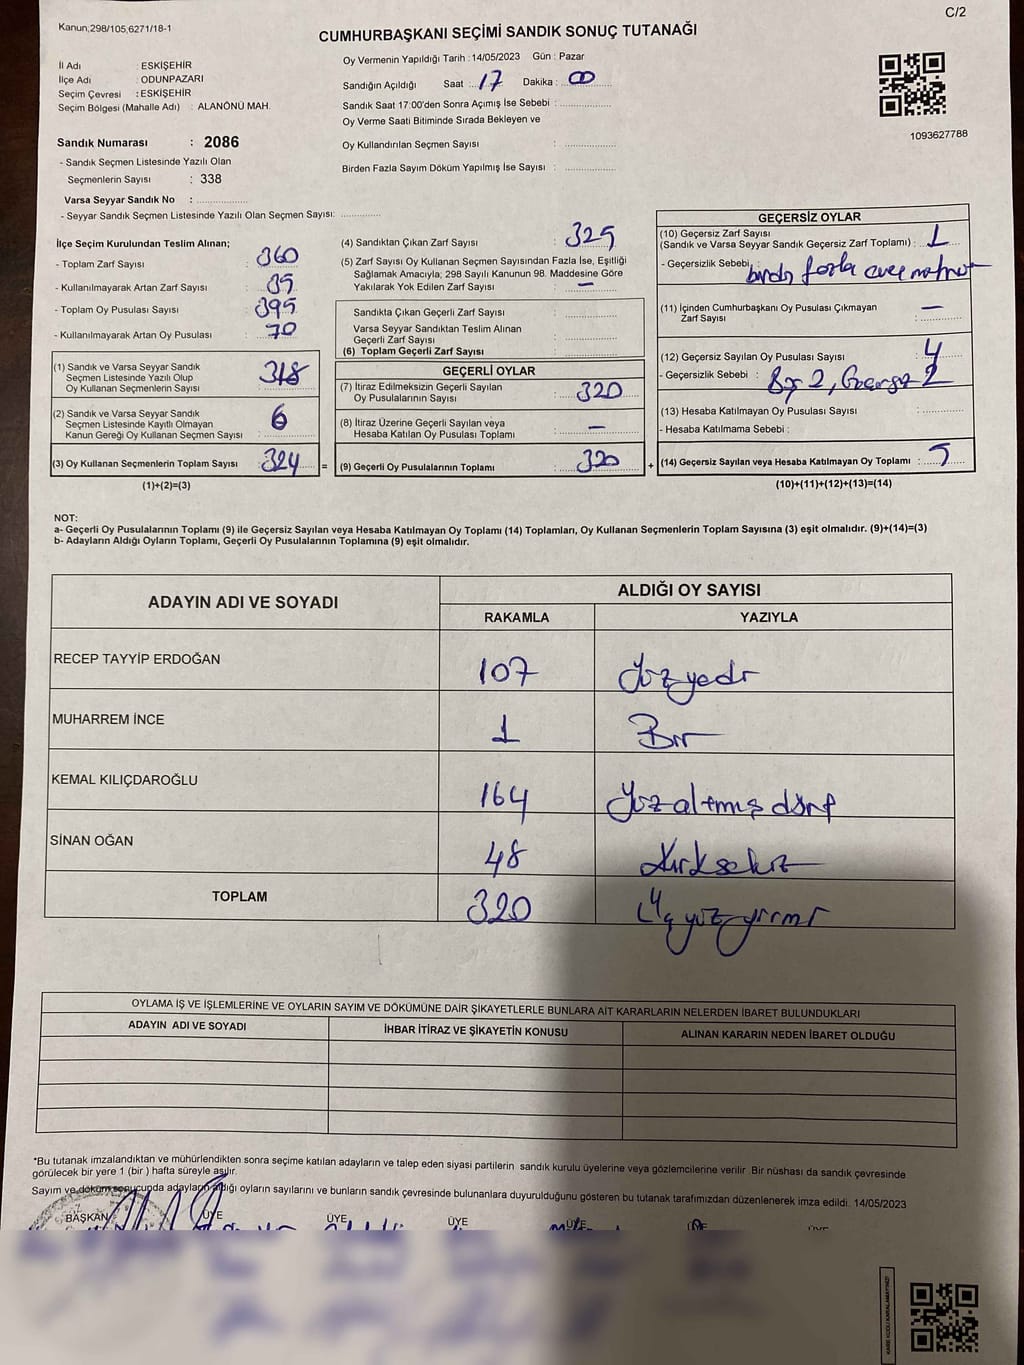 C/2
Kanun;298/105,6271/18-1
CUMHURBAŞKANI SEÇİMİ SANDIK SONUÇ TUTANAĞI
İl Adı : ESKİŞEHİR
İlçe Adı : ODUNPAZARI
Seçim Çevresi : ESKİŞEHİR
Seçim Bölgesi (Mahalle Adı) : ALANÖNÜ MAH.
Sandık Numarası : 2086
- Sandık Seçmen Listesinde Yazılı Olan
Seçmenlerin Sayısı : 338
Varsa Seyyar Sandık No :
- Seyyar Sandık Seçmen Listesinde Yazılı Olan Seçmen Sayısı:
Oy Vermenin Yapıldığı Tarih : 14/05/2023 Gün : Pazar
Sandığın Açıldığı Saat : 17 Dakika : 00
Sandık Saat 17:00'den Sonra Açımış İse Sebebi :
Oy Verme Saati Bitiminde Sırada Bekleyen ve
Oy Kullandırılan Seçmen Sayısı :
Birden Fazla Sayım Döküm Yapılmış İse Sayısı :
1093627788
İlçe Seçim Kurulundan Teslim Alınan;
- Toplam Zarf Sayısı : 360
- Kullanılmayarak Artan Zarf Sayısı : 35
- Toplam Oy Pusulası Sayısı : 395
- Kullanılmayarak Artan Oy Pusulası : 70
(1) Sandık ve Varsa Seyyar Sandık
Seçmen Listesinde Yazılı Olup
Oy Kullanan Seçmenlerin Sayısı : 318
(2) Sandık ve Varsa Seyyar Sandık
Seçmen Listesinde Kayıtlı Olmayan
Kanun Gereği Oy Kullanan Seçmen Sayısı : 6
(3) Oy Kullanan Seçmenlerin Toplam Sayısı : 324 =
(1)+(2)=(3)
(4) Sandıktan Çıkan Zarf Sayısı : 325
(5) Zarf Sayısı Oy Kullanan Seçmen Sayısından Fazla İse, Eşitliği
Sağlamak Amacıyla; 298 Sayılı Kanunun 98. Maddesine Göre
Yakılarak Yok Edilen Zarf Sayısı : —
Sandıkta Çıkan Geçerli Zarf Sayısı :
Varsa Seyyar Sandıktan Teslim Alınan
Geçerli Zarf Sayısı :
(6) Toplam Geçerli Zarf Sayısı :
GEÇERLİ OYLAR
(7) İtiraz Edilmeksizin Geçerli Sayılan
Oy Pusulalarının Sayısı : 320
(8) İtiraz Üzerine Geçerli Sayılan veya
Hesaba Katılan Oy Pusulası Toplamı : —
(9) Geçerli Oy Pusulalarının Toplamı : 320 +
GEÇERSİZ OYLAR
(10) Geçersiz Zarf Sayısı
(Sandık ve Varsa Seyyar Sandık Geçersiz Zarf Toplamı) : 1
- Geçersizlik Sebebi : birden fazla
(11) İçinden Cumhurbaşkanı Oy Pusulası Çıkmayan
Zarf Sayısı : —
(12) Geçersiz Sayılan Oy Pusulası Sayısı : 4
- Geçersizlik Sebebi : Boş 2, Geçersiz 2
(13) Hesaba Katılmayan Oy Pusulası Sayısı :
- Hesaba Katılmama Sebebi :
(14) Geçersiz Sayılan veya Hesaba Katılmayan Oy Toplamı : 5
(10)+(11)+(12)+(13)=(14)
NOT:
a- Geçerli Oy Pusulalarının Toplamı (9) ile Geçersiz Sayılan veya Hesaba Katılmayan Oy Toplamı (14) Toplamları, Oy Kullanan Seçmenlerin Toplam Sayısına (3) eşit olmalıdır. (9)+(14)=(3)
b- Adayların Aldığı Oyların Toplamı, Geçerli Oy Pusulalarının Toplamına (9) eşit olmalıdır.
ADAYIN ADI VE SOYADI
ALDIĞI OY SAYISI
RAKAMLA YAZIYLA
RECEP TAYYİP ERDOĞAN 107 Yüz yedi
MUHARREM İNCE 1 Bir
KEMAL KILIÇDAROĞLU 164 Yüz altmış dört
SİNAN OĞAN 48 Kırksekiz
TOPLAM 320 Üç yüz yirmi
OYLAMA İŞ VE İŞLEMLERİNE VE OYLARIN SAYIM VE DÖKÜMÜNE DAİR ŞİKAYETLERLE BUNLARA AİT KARARLARIN NELERDEN İBARET BULUNDUKLARI
ADAYIN ADI VE SOYADI İHBAR İTİRAZ VE ŞİKAYETİN KONUSU ALINAN KARARIN NEDEN İBARET OLDUĞU
*Bu tutanak imzalandıktan ve mühürlendikten sonra seçime katılan adayların ve talep eden siyasi partilerin sandık kurulu üyelerine veya gözlemcilerine verilir. Bir nüshası da sandık çevresinde
görülecek bir yere 1 (bir) hafta süreyle asılır.
Sayım ve döküm sonucunda adayların aldığı oyların sayılarını ve bunların sandık çevresinde bulunanlara duyurulduğunu gösteren bu tutanak tarafımızdan düzenlenerek imza edildi. 14/05/2023
BAŞKAN ÜYE ÜYE ÜYE ÜYE ÜYE ÜYE